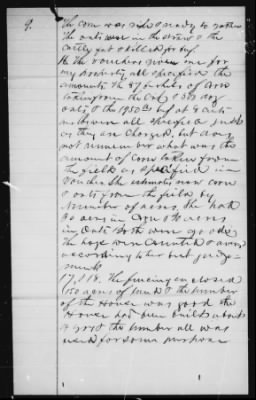 9.
The corn was ripe & ready to gather
the oats were in the straw & the
cattle fat & killed for beef
16 The Vouchers given me for
my property all specified the
amounts the 87 bushels of Corn
taken from the
oats & the 1950 lbs beef at 5 cts
were all specified just
as they are Charged, but do
not remember what was the
amount of Corn taken from
the field as specified in
Voucher She estimates now corn
& oats from the field by
Number of acres, she had
30 acres in Corn & acres
in Oats Both were good
the hogs were Counted &
according to her best judge-
ment
17, & 18. The fencing enclosed
150 acres of land & the timber
of the House was good the
House had been built about
the timber all was
used for some purpose